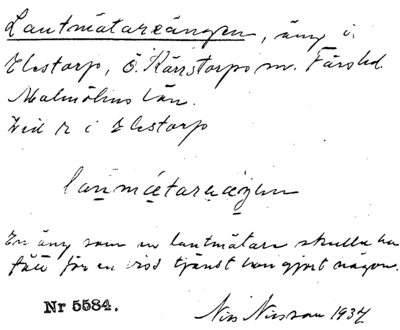 Lantmätareängen, äng i
Elestorp, Ö. Kärrstorps sn. Färs hd.
Malmöhus län.
Ved 12 i Elestorp
lanmätaræŋen
En äng som en lantmätare skulle ha
fått för en viss tjänst han gjort någon.
Nr 5584. Nils Nilsson 1937